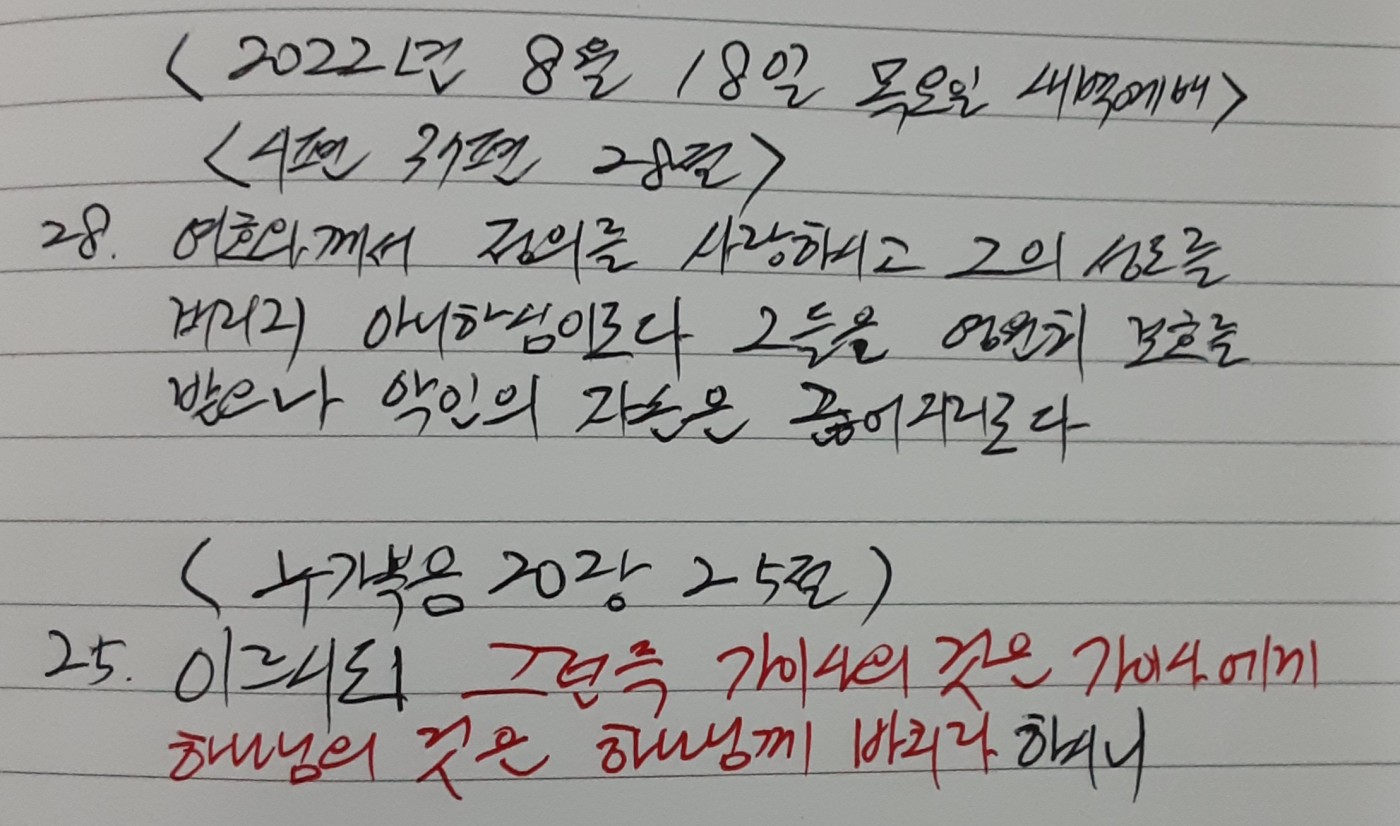 < 2022년 8월 18일 목요일 새벽예배 >
< 시편 37편 28절 >
28. 여호와께서 정의를 사랑하시고 그의 성도를
버리지 아니하심이로다 그들은 영원히 보호를
받으나 악인의 자손은 끊어지리로다
( 누가복음 20장 25절 )
25. 이르시되 그런즉 가이사의 것은 가이사에게
하나님의 것은 하나님께 바치라 하시니